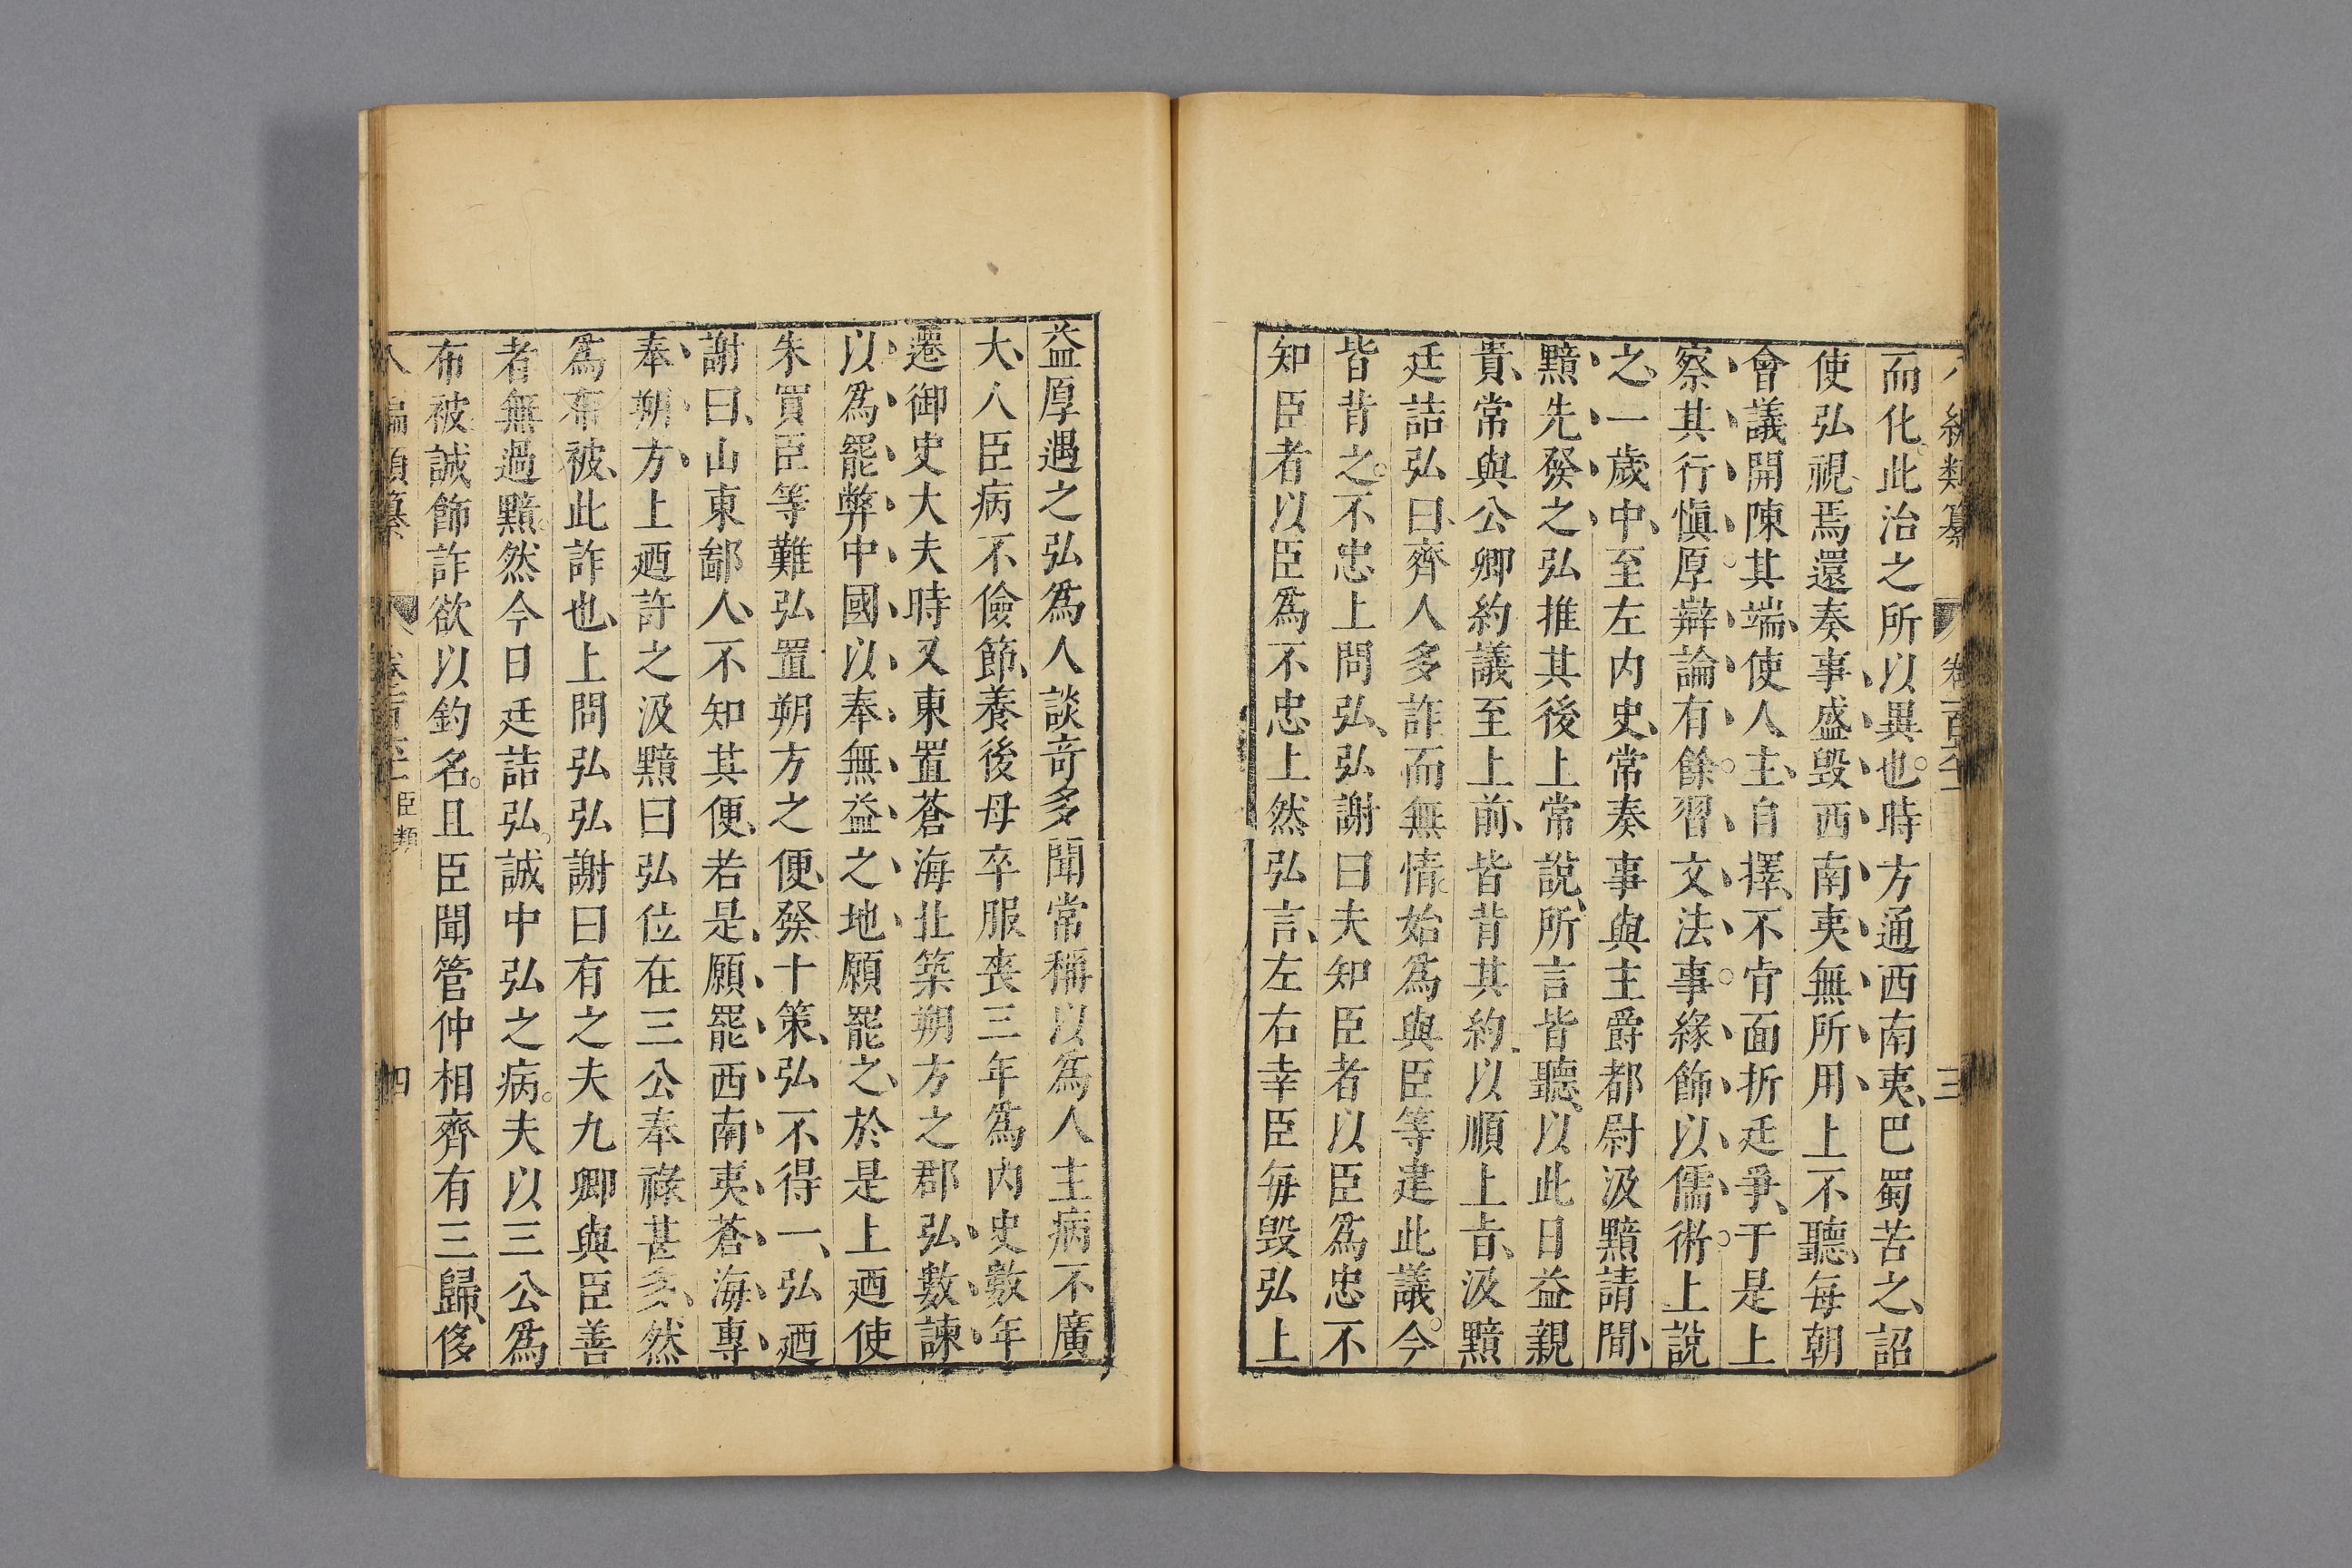 編類纂 卷 三
而化此治之所以異也時方通西南夷巴蜀苦之詔
使弘視焉還奏事盛毀西南夷無所用上不聽每朝
會議開陳其端使人主自擇不肯面折廷爭于是上
察其行慎厚辯論有餘習文法事緣飾以儒術上說
之一歲中至左內史常奏事與主爵都尉汲黯請間
黯先發之弘推其後上常說所言皆聽以此日益親
貴常與公卿約議至上前皆背其約以順上吉汲黯
廷詰弘曰齊人多詐而無情始為與臣等建此議今
皆背之不忠上問弘弘謝曰夫知臣者以臣為忠不
知臣者以臣為不忠上然弘言左右幸臣每毀弘上
益厚遇之弘為人談奇多聞常稱以為人主病不廣
大人臣病不儉節養後母卒服喪三年為內史數年
遷御史大夫時又東置蒼海北築朔方之郡弘數諫
以為罷弊中國以奉無益之地願罷之於是上迺使
朱買臣等難弘置朔方之便發十策弘不得一弘迺
謝曰山東鄙人不知其便若是願罷西南夷蒼海專
奉朔方上迺許之汲黯曰弘位在三公奉祿甚多然
為布被此詐也上問弘弘謝曰有之夫九卿與臣善
者無過黯然今日廷詰弘誠中弘之病夫以三公為
布被誠飾詐欲以釣名且臣聞管仲相齊有三歸侈
編類纂 臣類 四